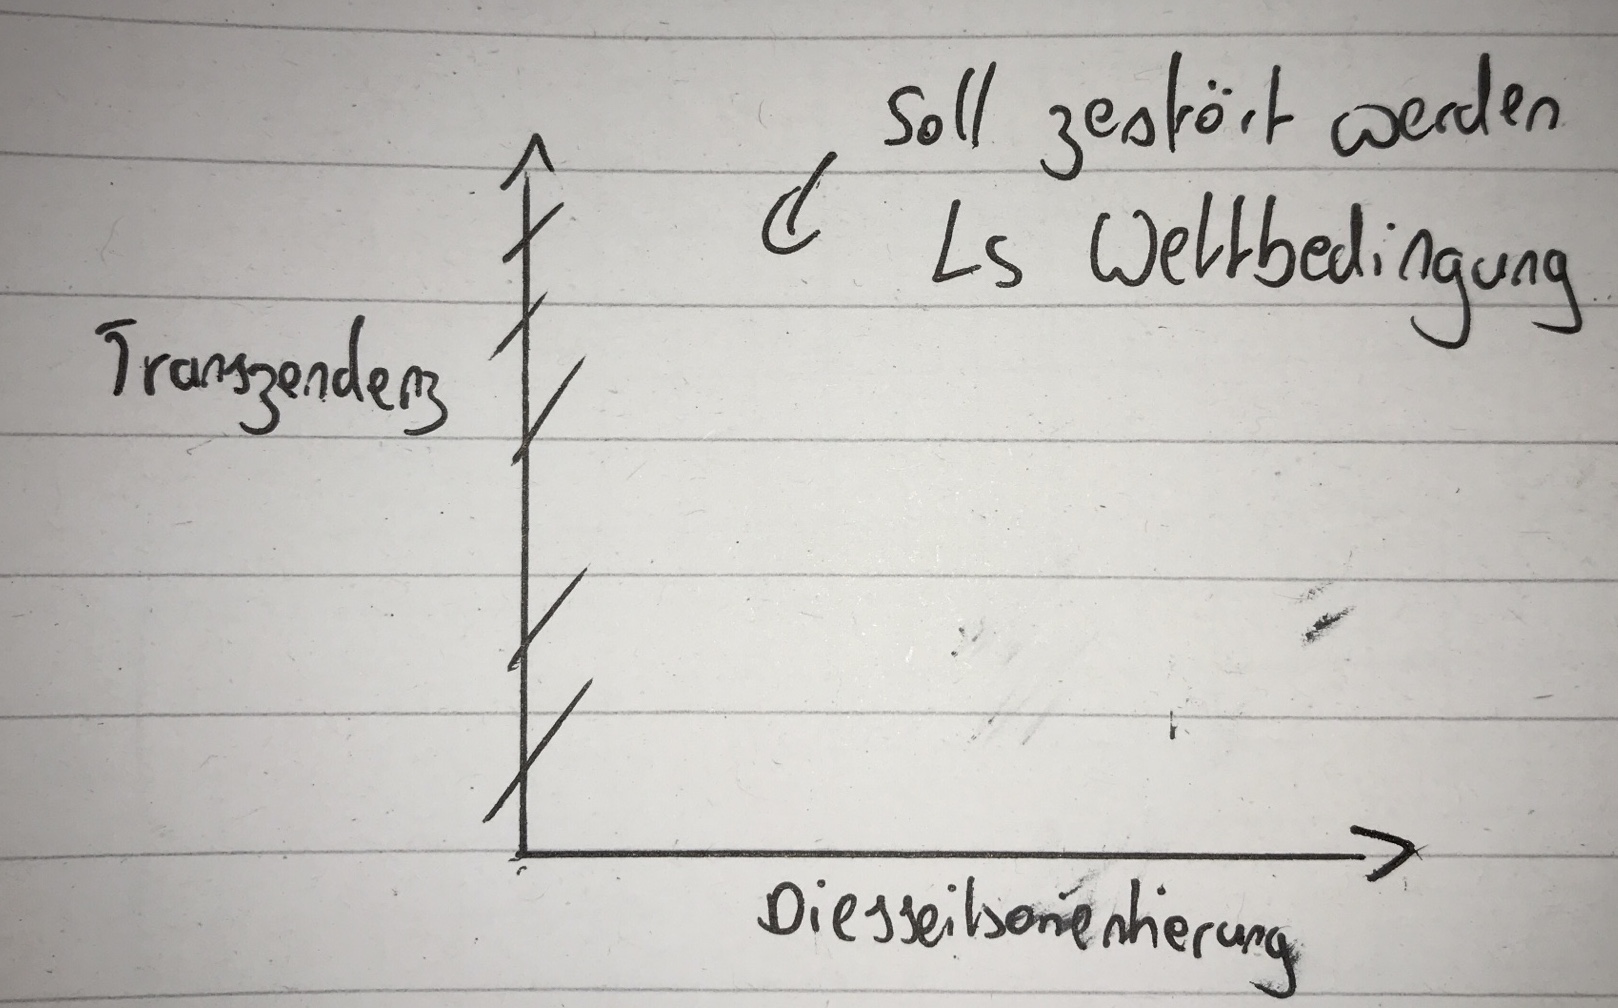 Soll zestört werden
Ls Weltbedingung
Transzendenz
Diesseitsorientierung